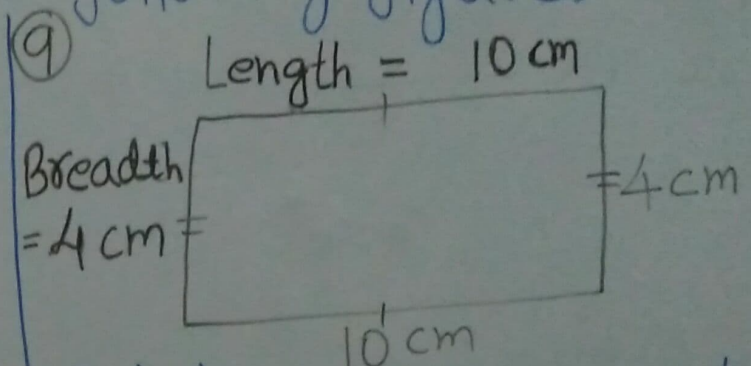 9
Length = 10 cm
Breadth
= 4 cm
= 4 cm
10 cm